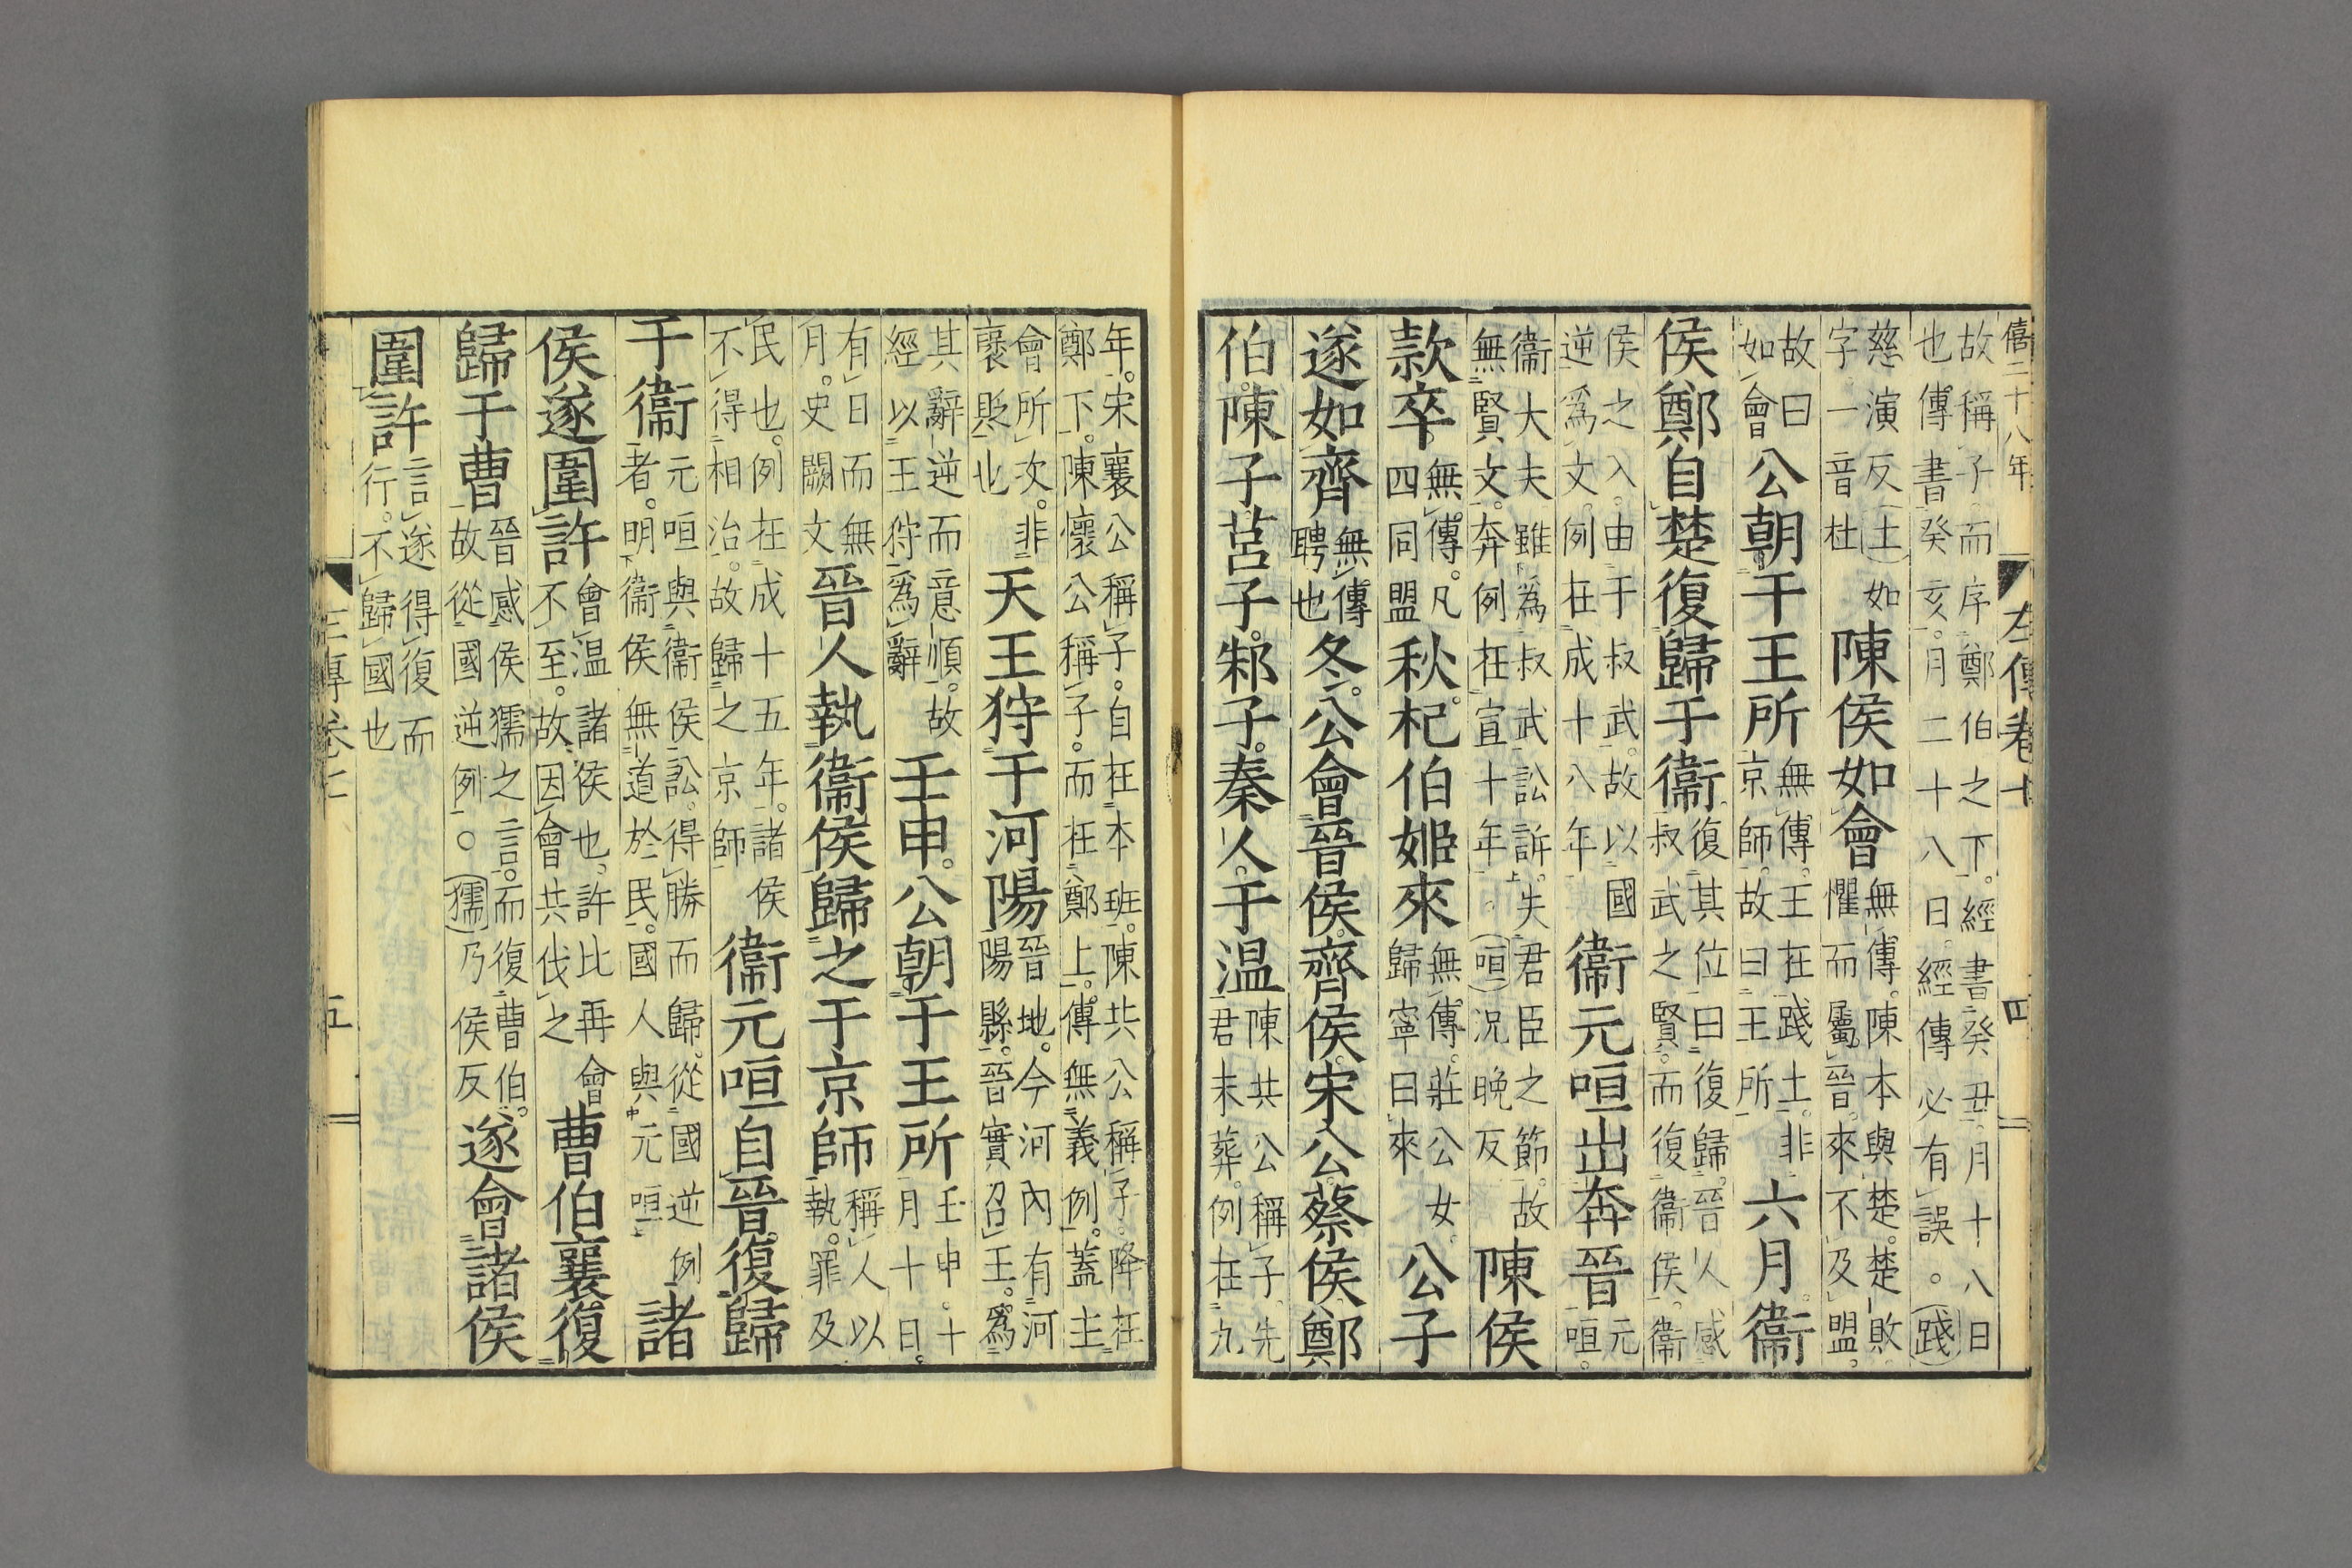 僖二十八年
左傳卷十
四
故稱子而序鄭伯之下。經書癸丑。月十八日
也。傳書癸亥。月二十八日。經傳必有誤。○踐
慈演反土如
字一音杜陳侯如會無傳。陳本與楚。楚敗。
懼而屬晉。來不及盟。
故曰
如會公朝于王所無傳。王在踐土。非
京師。故曰王所六月衞
侯鄭自楚復歸于衞復其位曰復歸。晉人感
叔武之賢。而復衞侯。衞
侯之入。由于叔武。故以國
逆爲文。例在成十八年衞元咺出奔晉元
咺。
衞大夫雖爲叔武訟訴。失君臣之節。故
無賢文。奔例在宣十年。○咺況晚反陳侯
款卒。無傳。凡
四同盟秋。杞伯姬來無傳。莊公女。
歸寧曰來公子
遂如齊無傳
聘也冬。公會晉侯。齊侯。宋公。蔡侯。鄭
伯。陳子。莒子。邾子。秦人。于温陳共公稱子。先
君未葬。例在九
年。宋襄公稱子。自在本班。陳共公稱子。降在
鄭下。陳懷公稱子。而在鄭上。傳無義例。蓋主
會所次。非
襃貶也天王狩于河陽晉地。今河內有河
陽縣。晉實召王。爲
其辭逆而意順。故
經以王狩爲辭壬申。公朝于王所壬申。十
月十日。
有日而無
月。史闕文晉人執衞侯歸之于京師稱人以
執。罪及
民也。例在成十五年。諸侯
不得相治。故歸之京師衞元咺自晉。復歸
于衞元咺與衞侯訟。得勝而歸。從國逆例
者。明衞侯無道於民。國人與元咺諸
侯遂圍許會温諸侯也。許比再會
不至。故因會共伐之曹伯襄復
歸于曹晉感侯獳之言。而復曹伯。
故從國逆例。○獳乃侯反遂會諸侯
圍許言遂得復而
行。不歸國也
五